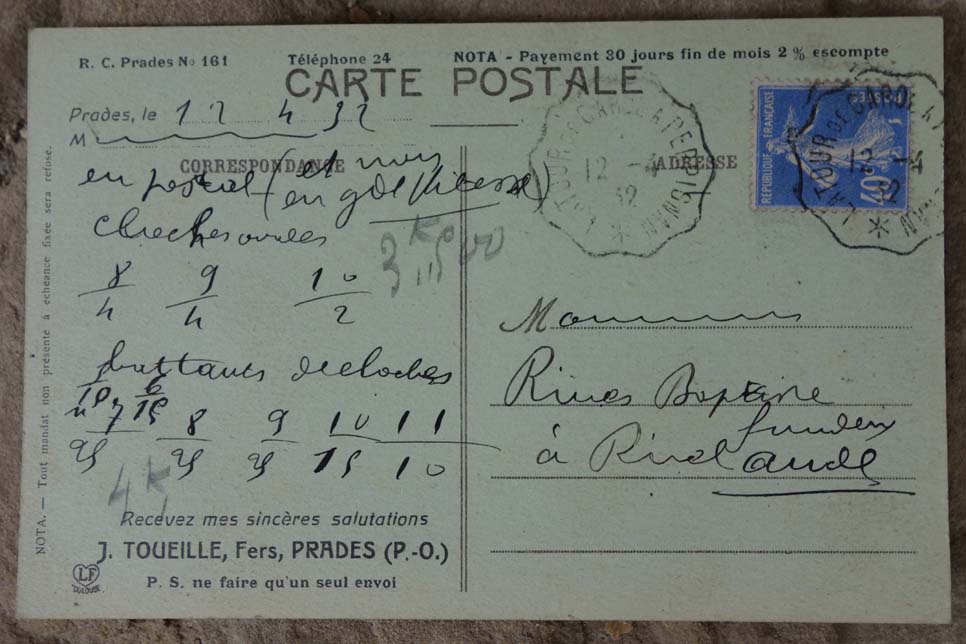 R. C. Prades No 161 Téléphone 24 NOTA - Payement 30 jours fin de mois 2 % escompte
CARTE POSTALE
Prades, le 12 4 32
M
CORRESPONDANCE ADRESSE
en postal (et non
en gde vitesse)
cloches ovales
8 9 10
4 4 2
battants de cloches
5 6
10 15
7 8 9 10 11
25 25 25 15 10
3 K 500
4 K
Recevez mes sincères salutations
J. TOUEILLE, Fers, PRADES (P.-O.)
P. S. ne faire qu'un seul envoi
NOTA. — Tout mandat non présenté à échéance fixée sera refusé.
LF
TOULOUSE
LA TOUR DE CAROL A PERPIGNAN
12 -4
32
REPUBLIQUE FRANÇAISE
POSTES
40c
LA TOUR DE CAROL A PERPIGNAN
12 -4
32
Monsieur
Rives Baptiste
fondeur
à Rivel
Aude